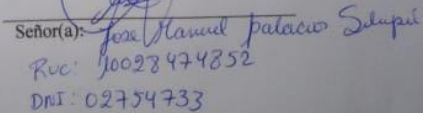 Señor(a): Jose Manuel palacios Silupú
Ruc: 10028474852
DNI: 02754733